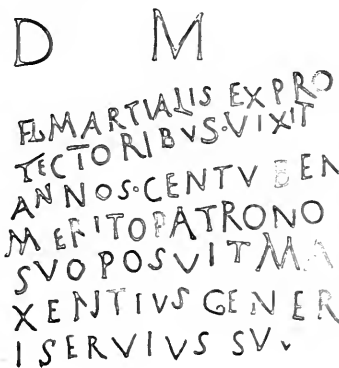 D M
FL MARTIALIS EX PRO
TECTORIBVS·VIXIT
ANNOS·CENTV BEN
MERITO PATRONO
SVO POSVIT MA
XENTIVS GENER
I SERVIVS SV